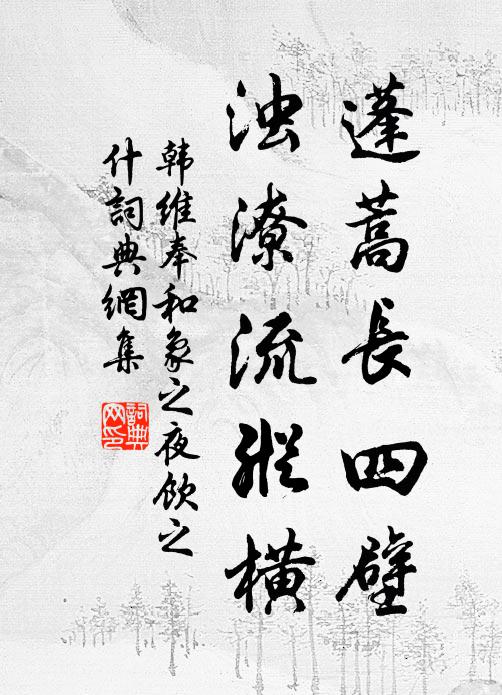 蓬蒿長四壁
浊潦流縱横
韩维奉和象之夜飲之
什詞典網集
詞典
网印